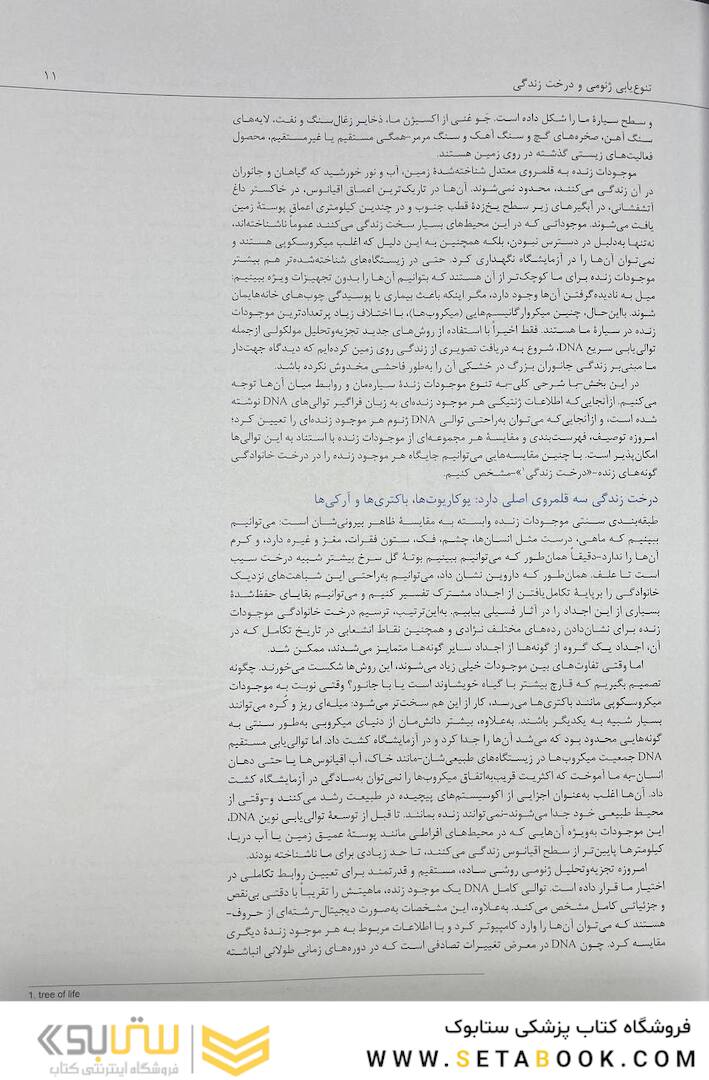 تنوع‌یابی ژنومی و درخت زندگی
۱۱
و سطح سیارهٔ ما را شکل داده است. جَو غنی از اکسیژن ما، ذخایر زغال‌سنگ و نفت، لایه‌های
سنگ آهن، صخره‌های گچ و سنگ آهک و سنگ مرمر-همگی مستقیم یا غیرمستقیم، محصول
فعالیت‌های زیستی گذشته در روی زمین هستند.
موجودات زنده به قلمروی معتدل شناخته‌شدهٔ زمین، آب و نور خورشید که گیاهان و جانوران
در آن زندگی می‌کنند، محدود نمی‌شوند. آن‌ها در تاریک‌ترین اعماق اقیانوس، در خاکستر داغ
آتشفشانی، در آبگیرهای زیر سطح یخ‌زدهٔ قطب جنوب و در چندین کیلومتری اعماق پوستهٔ زمین
یافت می‌شوند. موجوداتی که در این محیط‌های بسیار سخت زندگی می‌کنند عموماً ناشناخته‌اند،
نه‌تنها به‌دلیل در دسترس نبودن، بلکه همچنین به این دلیل که اغلب میکروسکوپی هستند و
نمی‌توان آن‌ها را در آزمایشگاه نگهداری کرد. حتی در زیستگاه‌های شناخته‌شده‌تر هم بیشتر
موجودات زنده برای ما کوچک‌تر از آن هستند که بتوانیم آن‌ها را بدون تجهیزات ویژه ببینیم؛
میل به نادیده‌گرفتن آن‌ها وجود دارد، مگر اینکه باعث بیماری یا پوسیدگی چوب‌های خانه‌هایمان
شوند. بااین‌حال، چنین میکروارگانیسم‌هایی (میکروب‌ها)، با اختلاف زیاد پرتعدادترین موجودات
زنده در سیارهٔ ما هستند. فقط اخیراً با استفاده از روش‌های جدید تجزیه‌وتحلیل مولکولی ازجمله
توالی‌یابی سریع DNA، شروع به دریافت تصویری از زندگی روی زمین کرده‌ایم که دیدگاه جهت‌دار
ما مبنی‌بر زندگی جانوران بزرگ در خشکی آن را به‌طور فاحشی مخدوش نکرده باشد.
در این بخش-با شرحی کلی-به تنوع موجودات زندهٔ سیاره‌مان و روابط میان آن‌ها توجه
می‌کنیم. ازآنجایی‌که اطلاعات ژنتیکی هر موجود زنده‌ای به زبان فراگیر توالی‌های DNA نوشته
شده است، و ازآنجایی‌که می‌توان به‌راحتی توالی DNA ژنوم هر موجود زنده‌ای را تعیین کرد؛
امروزه توصیف، فهرست‌بندی و مقایسهٔ هر مجموعه‌ای از موجودات زنده با استناد به این توالی‌ها
امکان‌پذیر است. با چنین مقایسه‌هایی می‌توانیم جایگاه هر موجود زنده را در درخت خانوادگی
گونه‌های زنده-«درخت زندگی۱»-مشخص کنیم.
درخت زندگی سه قلمروی اصلی دارد: یوکاریوت‌ها، باکتری‌ها و آرکی‌ها
طبقه‌بندی سنتی موجودات زنده وابسته به مقایسهٔ ظاهر بیرونی‌شان است: می‌توانیم
ببینیم که ماهی، درست مثل انسان‌ها، چشم، فک، ستون فقرات، مغز و غیره دارد، و کرم
آن‌ها را ندارد-دقیقاً همان‌طور که می‌توانیم ببینیم بوتهٔ گل سرخ بیشتر شبیه درخت سیب
است تا علف. همان‌طور که داروین نشان داد، می‌توانیم به‌راحتی این شباهت‌های نزدیک
خانوادگی را برپایهٔ تکامل‌یافتن از اجداد مشترک تفسیر کنیم و می‌توانیم بقایای حفظ‌شدهٔ
بسیاری از این اجداد را در آثار فسیلی بیابیم. به‌این‌ترتیب، ترسیم درخت خانوادگی موجودات
زنده برای نشان‌دادن رده‌های مختلف نژادی و همچنین نقاط انشعابی در تاریخ تکامل که در
آن، اجداد یک گروه از گونه‌ها از اجداد سایر گونه‌ها متمایز می‌شدند، ممکن شد.
اما وقتی تفاوت‌های بین موجودات خیلی زیاد می‌شوند، این روش‌ها شکست می‌خورند. چگونه
تصمیم بگیریم که قارچ بیشتر با گیاه خویشاوند است یا با جانور؟ وقتی نوبت به موجودات
میکروسکوپی مانند باکتری‌ها می‌رسد، کار از این هم سخت‌تر می‌شود: میله‌ای ریز و کُره می‌توانند
بسیار شبیه به یکدیگر باشند. به‌علاوه، بیشتر دانش‌مان از دنیای میکروبی به‌طور سنتی به
گونه‌هایی محدود بود که می‌شد آن‌ها را جدا کرد و در آزمایشگاه کشت داد. اما توالی‌یابی مستقیم
DNA جمعیت میکروب‌ها در زیستگاه‌های طبیعی‌شان-مانند خاک، آب اقیانوس‌ها یا حتی دهان
انسان-به ما آموخت که اکثریت قریب‌به‌اتفاق میکروب‌ها را نمی‌توان به‌سادگی در آزمایشگاه کشت
داد. آن‌ها اغلب به‌عنوان اجزایی از اکوسیستم‌های پیچیده در طبیعت رشد می‌کنند و-وقتی از
محیط طبیعی خود جدا می‌شوند-نمی‌توانند زنده بمانند. تا قبل از توسعهٔ توالی‌یابی نوین DNA،
این موجودات به‌ویژه آن‌هایی که در محیط‌های افراطی مانند پوستهٔ عمیق زمین یا آب دریا،
کیلومترها پایین‌تر از سطح اقیانوس زندگی می‌کنند، تا حد زیادی برای ما ناشناخته بودند.
امروزه تجزیه‌وتحلیل ژنومی روشی ساده، مستقیم و قدرتمند برای تعیین روابط تکاملی در
اختیار ما قرار داده است. توالی کامل DNA یک موجود زنده، ماهیتش را تقریباً با دقتی بی‌نقص
و جزئیاتی کامل مشخص می‌کند. به‌علاوه، این مشخصات به‌صورت دیجیتال-رشته‌ای از حروف-
هستند که می‌توان آن‌ها را وارد کامپیوتر کرد و با اطلاعات مربوط به هر موجود زندهٔ دیگری
مقایسه کرد. چون DNA در معرض تغییرات تصادفی است که در دوره‌های زمانی طولانی انباشته
1. tree of life
فروشگاه کتاب پزشکی ستابوک
WWW.SETABOOK.COM
ستابوک
فروشگاه اینترنتی کتاب